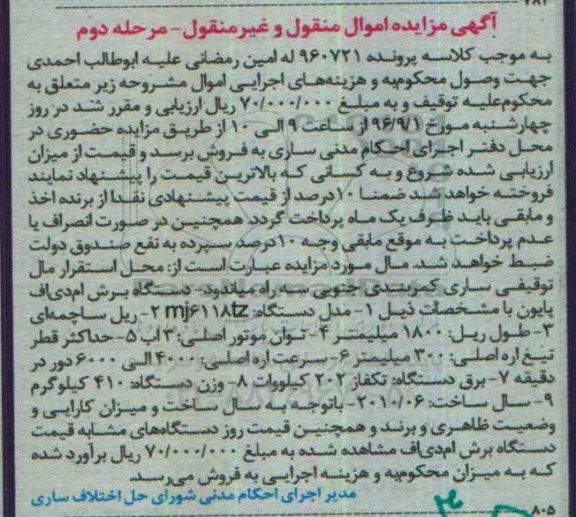 آگهی مزایده اموال منقول و غیرمنقول - مرحله دوم
به موجب کلاسه پرونده ۹۶۰۷۲۱ له امین رمضانی علیه ابوطالب احمدی
جهت وصول محکوم‌به و هزینه‌های اجرایی اموال مشروحه زیر متعلق به
محکوم‌علیه توقیف و به مبلغ ۷۰/۰۰۰/۰۰۰ ریال ارزیابی و مقرر شد در روز
چهارشنبه مورخ ۹۶/۹/۱ از ساعت ۹ الی ۱۰ از طریق مزایده حضوری در
محل دفتر اجرای احکام مدنی ساری به فروش برسد و قیمت از میزان
ارزیابی شده شروع و به کسانی که بالاترین قیمت را پیشنهاد نمایند
فروخته خواهد شد ضمنا ۱۰ درصد از قیمت پیشنهادی نقدا از برنده اخذ
و مابقی باید ظرف یک ماه پرداخت گردد همچنین در صورت انصراف یا
عدم پرداخت به موقع مابقی وجه ۱۰ درصد سپرده به نفع صندوق دولت
ضبط خواهد شد. مال مورد مزایده عبارت است از: محل استقرار مال
توقیفی ساری کمربندی جنوبی سه راه میاندود- دستگاه برش ام‌دی‌اف
پایون با مشخصات ذیل ۱- مدل دستگاه: mj۶۱۱۸tz ۲- ریل ساچمه‌ای
۳- طول ریل: ۱۸۰۰ میلیمتر ۴- توان موتور اصلی: ۳ اب ۵- حداکثر قطر
تیغ اره اصلی: ۳۰۰ میلیمتر ۶- سرعت اره اصلی: ۴۰۰۰ الی ۶۰۰۰ دور در
دقیقه ۷- برق دستگاه: تکفاز ۲۰۲ کیلووات ۸- وزن دستگاه: ۴۱۰ کیلوگرم
۹- سال ساخت: ۲۰۱۰/۰۶- باتوجه به سال ساخت و میزان کارایی و
وضعیت ظاهری و برند و همچنین قیمت روز دستگاه‌های مشابه قیمت
دستگاه برش ام‌دی‌اف مشاهده شده به مبلغ ۷۰/۰۰۰/۰۰۰ ریال برآورد شده
که به میزان محکوم‌به و هزینه اجرایی به فروش می‌رسد.
مدیر اجرای احکام مدنی شورای حل اختلاف ساری
۸۰۵